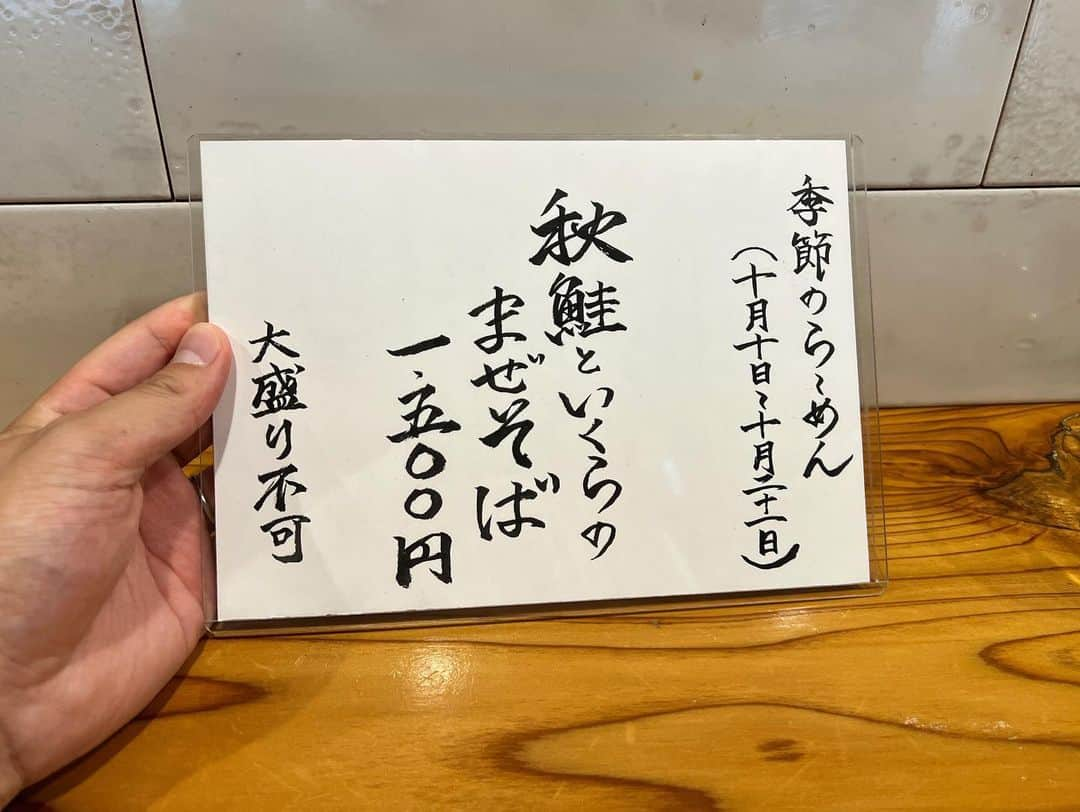 季節のらーめん
（十月十日〜十月二十一日）
秋鮭といくらの
まぜそば
一、五〇〇円
大盛り不可